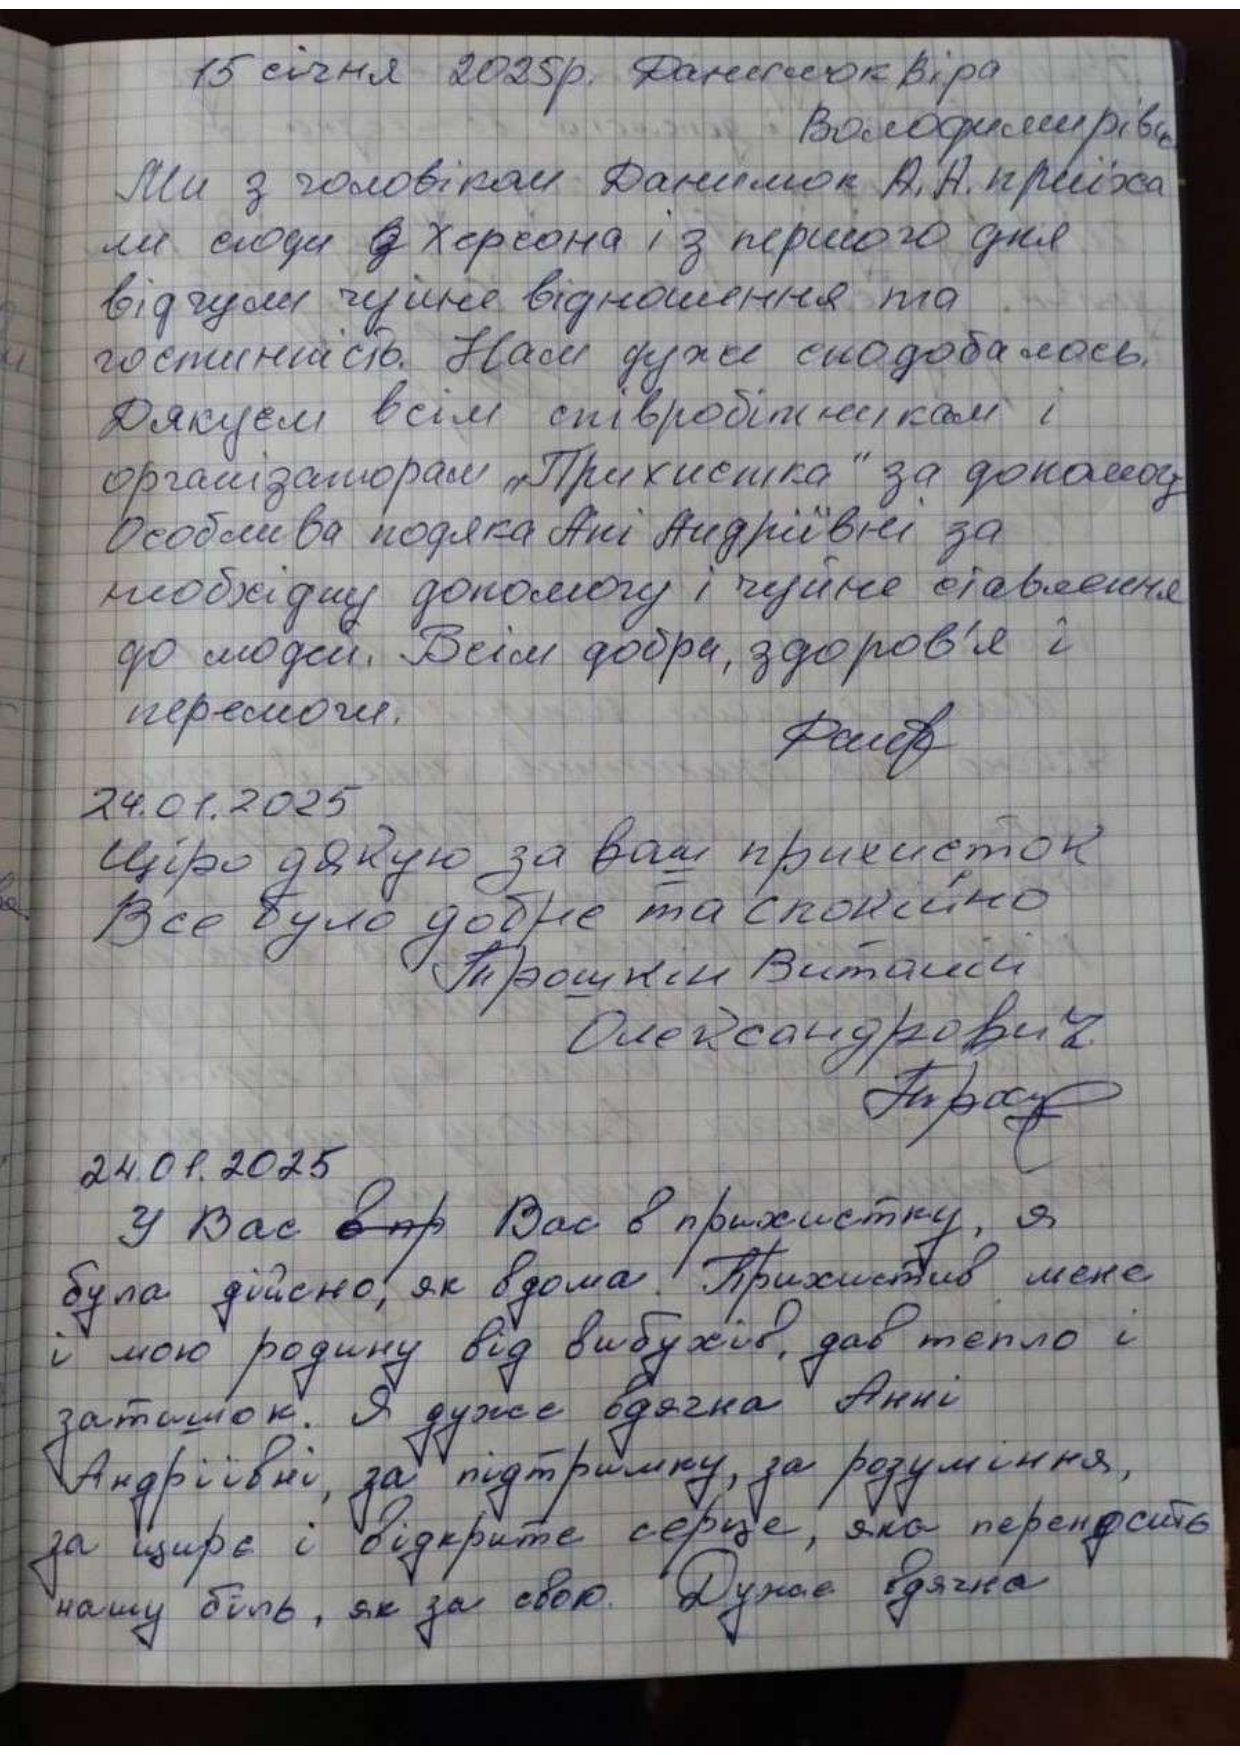 15 січня 2025р. Данилюк Віра
Володимирівн
Ми з чоловіком Данилюк А.А. приїха
ли сюди з Херсона і з першого дня
відчули чуйне відношення та
гостинність. Нам дуже сподобалось.
Дякуєм всім співробітникам і
організаторам „Прихистка" за допомогу
Особлива подяка Ані Андріївні за
необхідну допомогу і чуйне ставлення
до людей. Всім добра, здоров'я і
перемоги.
24.01.2025
Щіро дякую за ваш прихисток
Все було добре та спокійно
Трошкін Виталій
Олександрович
24.01.2025
У Вас в пр Вас в прихистку, я
була дійсно, як вдома! Прихистив мене
і мою родину від вибухів, дав тепло і
затишок. Я дуже вдячна Анні
Андріївні, за підтримку, за розуміння,
за щире і відкрите серце, яка переносить
нашу біль, як за свою. Дуже вдячна